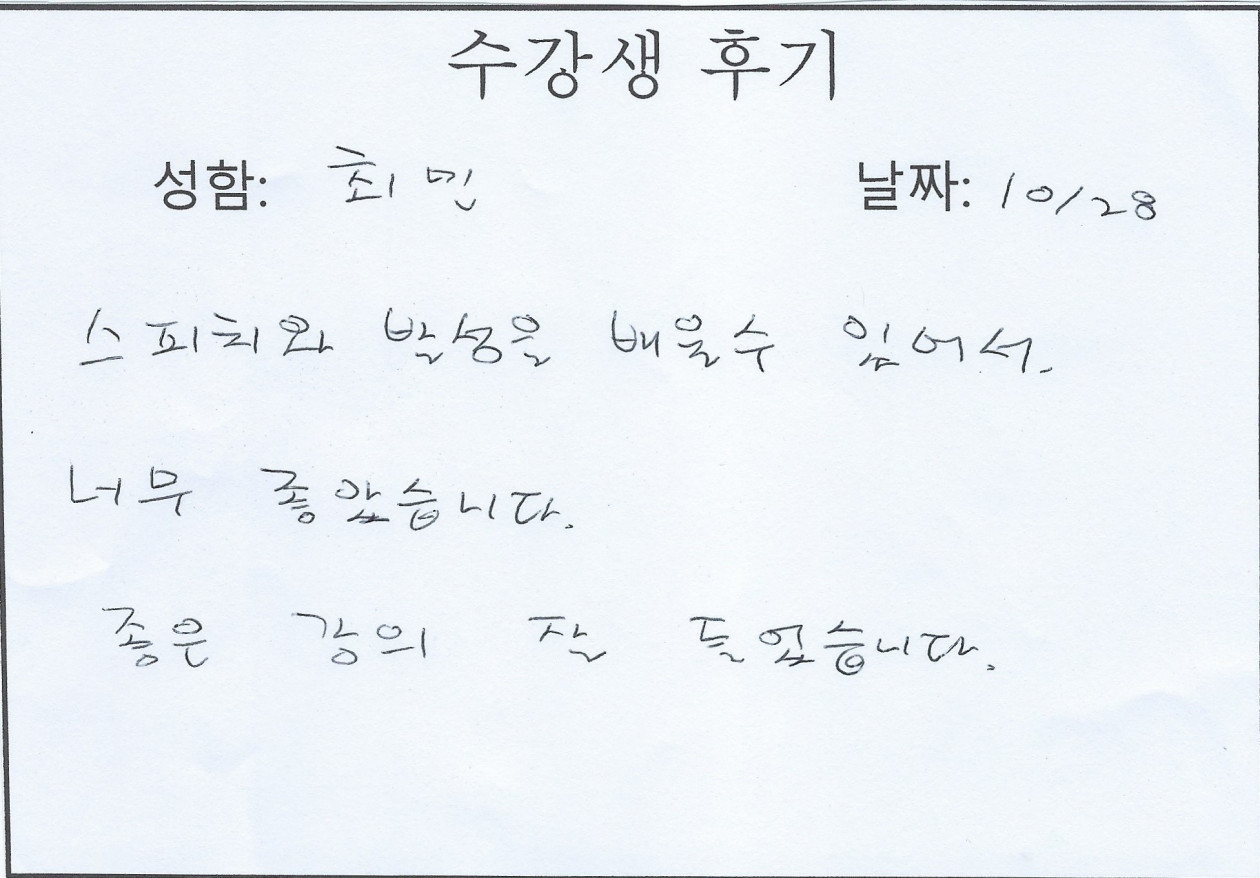 수강생 후기
성함: 최민 날짜: 10/28
스피치와 발성을 배울수 있어서.
너무 좋았습니다.
좋은 강의 잘 들었습니다.